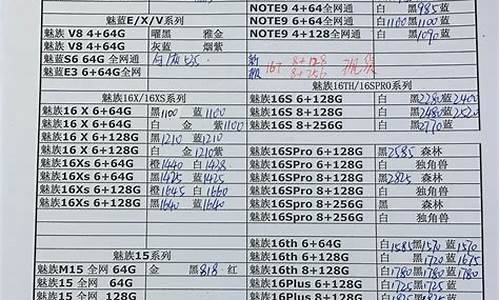 NOTE9 4+64全网通 白 黑985蓝
魅蓝E/X/V系列 NOTE9 6+64全网通 白1100黑1100蓝
魅族 V8 4+64G 曜黑 雅金 NOTE9 4+128全网通 白 黑1090蓝
魅族 V8 4+64G 灰蓝 烟紫
魅蓝S6 64G 全网通 16T 8+128
魅蓝E3 6+64G全网通 8+256
魅族16X/16XS系列 魅族16TH/16SPRO系列
魅族16 X 6+64G 黑1100 蓝1100 魅族16S 6+128G 白 黑2280蓝2400
魅族16 X 6+64G 白 金 紫1100 魅族16S 8+128G 白 黑2480蓝2520
魅族16 X 6+128G 黑1210 蓝1210 魅族16S 8+256G 白 黑2770蓝
魅族16 X 6+128G 白 金 紫1210
魅族16Xs 6+64G 橙1440 白1428 魅族16SPro 6+128G 黑2585 森林
魅族16Xs 6+64G 黑1425 蓝1425 魅族16SPro 6+128G 白 独角兽
魅族16Xs 6+128G 橙1645 白1660 魅族16SPro 8+128G 黑2825 森林
魅族16Xs 6+128G 黑1640 蓝1640 魅族16SPro 8+128G 白 独角兽
魅族16SPro 8+256G 黑 森林
魅族16SPro 8+256G 白 独角兽
魅族15系列 魅族16th 6+64G 白1585黑1570蓝1570
魅族M15 全网 64G 金 黑818 红 魅族16th 6+128G 白 黑1720蓝1675
魅族15 全网 64G 魅族16th 8+128G 白1780黑1780蓝1780
魅族15 全网 128G 魅族16Plus 6+128G 白1725黑1725蓝